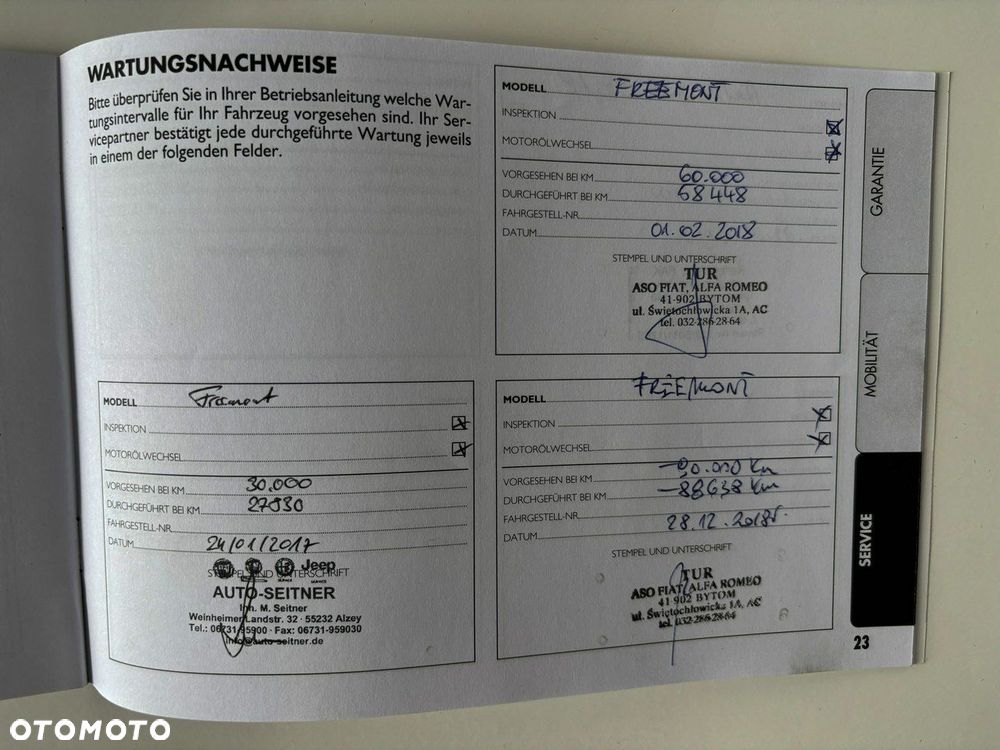 WARTUNGSNACHWEISE
Bitte überprüfen Sie in Ihrer Betriebsanleitung welche War-
tungsintervalle für Ihr Fahrzeug vorgesehen sind. Ihr Ser-
vicepartner bestätigt jede durchgeführte Wartung jeweils
in einem der folgenden Felder.
MODELL FREEMONT
INSPEKTION
MOTORÖLWECHSEL
VORGESEHEN BEI KM 60.000
DURCHGEFÜHRT BEI KM 58448
FAHRGESTELL-NR.
DATUM 01.02.2018
STEMPEL UND UNTERSCHRIFT
TUR
ASO FIAT, ALFA ROMEO
41-902 BYTOM
ul. Świętochłowicka 1A, AC
tel. 032-286-28-64
MODELL Freemont
INSPEKTION
MOTORÖLWECHSEL
VORGESEHEN BEI KM 30.000
DURCHGEFÜHRT BEI KM 27930
FAHRGESTELL-NR.
DATUM 24/01/2017
STEMPEL UND UNTERSCHRIFT
Jeep
AUTO-SEITNER
Inh. M. Seitner
Weinheimer Landstr. 32 · 55232 Alzey
Tel.: 06731-95900 · Fax: 06731-959030
info@auto-seitner.de
MODELL FREEMONT
INSPEKTION
MOTORÖLWECHSEL
VORGESEHEN BEI KM 90.000 Km
DURCHGEFÜHRT BEI KM 88638 Km
FAHRGESTELL-NR.
DATUM 28.12.2018r.
STEMPEL UND UNTERSCHRIFT
TUR
ASO FIAT, ALFA ROMEO
41-902 BYTOM
ul. Świętochłowicka 1A, AC
tel. 032-286-28-64
GARANTIE
MOBILITÄT
SERVICE
23
OTOMOTO